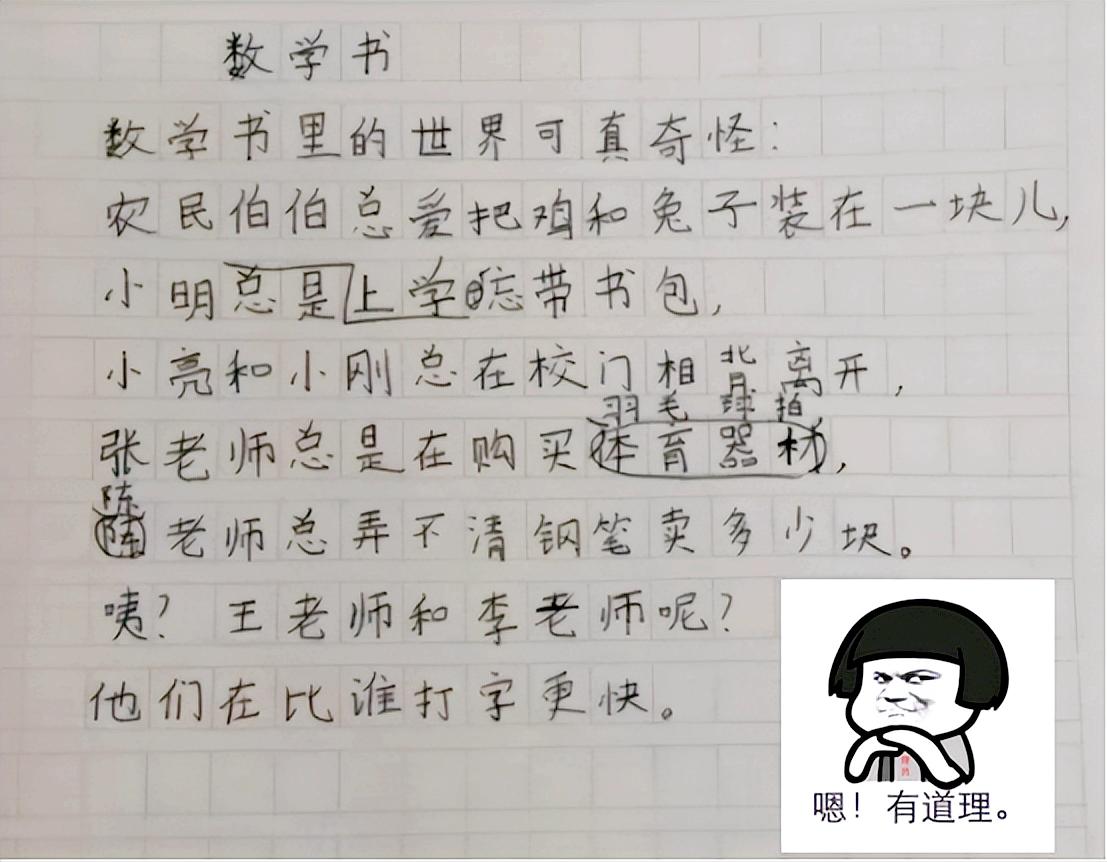 数学书
数学书里的世界可真奇怪：
农民伯伯总爱把鸡和兔子装在一块儿，
小明总是上学忘带书包，
小亮和小刚总在校门相背离开，
羽毛球拍，
张老师总是在购买体育器材，
陈
陈老师总弄不清钢笔卖多少块。
咦？王老师和李老师呢？
他们在比谁打字更快。
嗯！有道理。